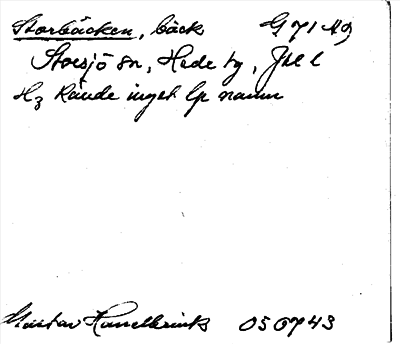 Storbäcken, bäck G 71 Ag
Storsjö sn, Hede tg, Jtl l
Hz kände inget lp namn
Gustav 050743